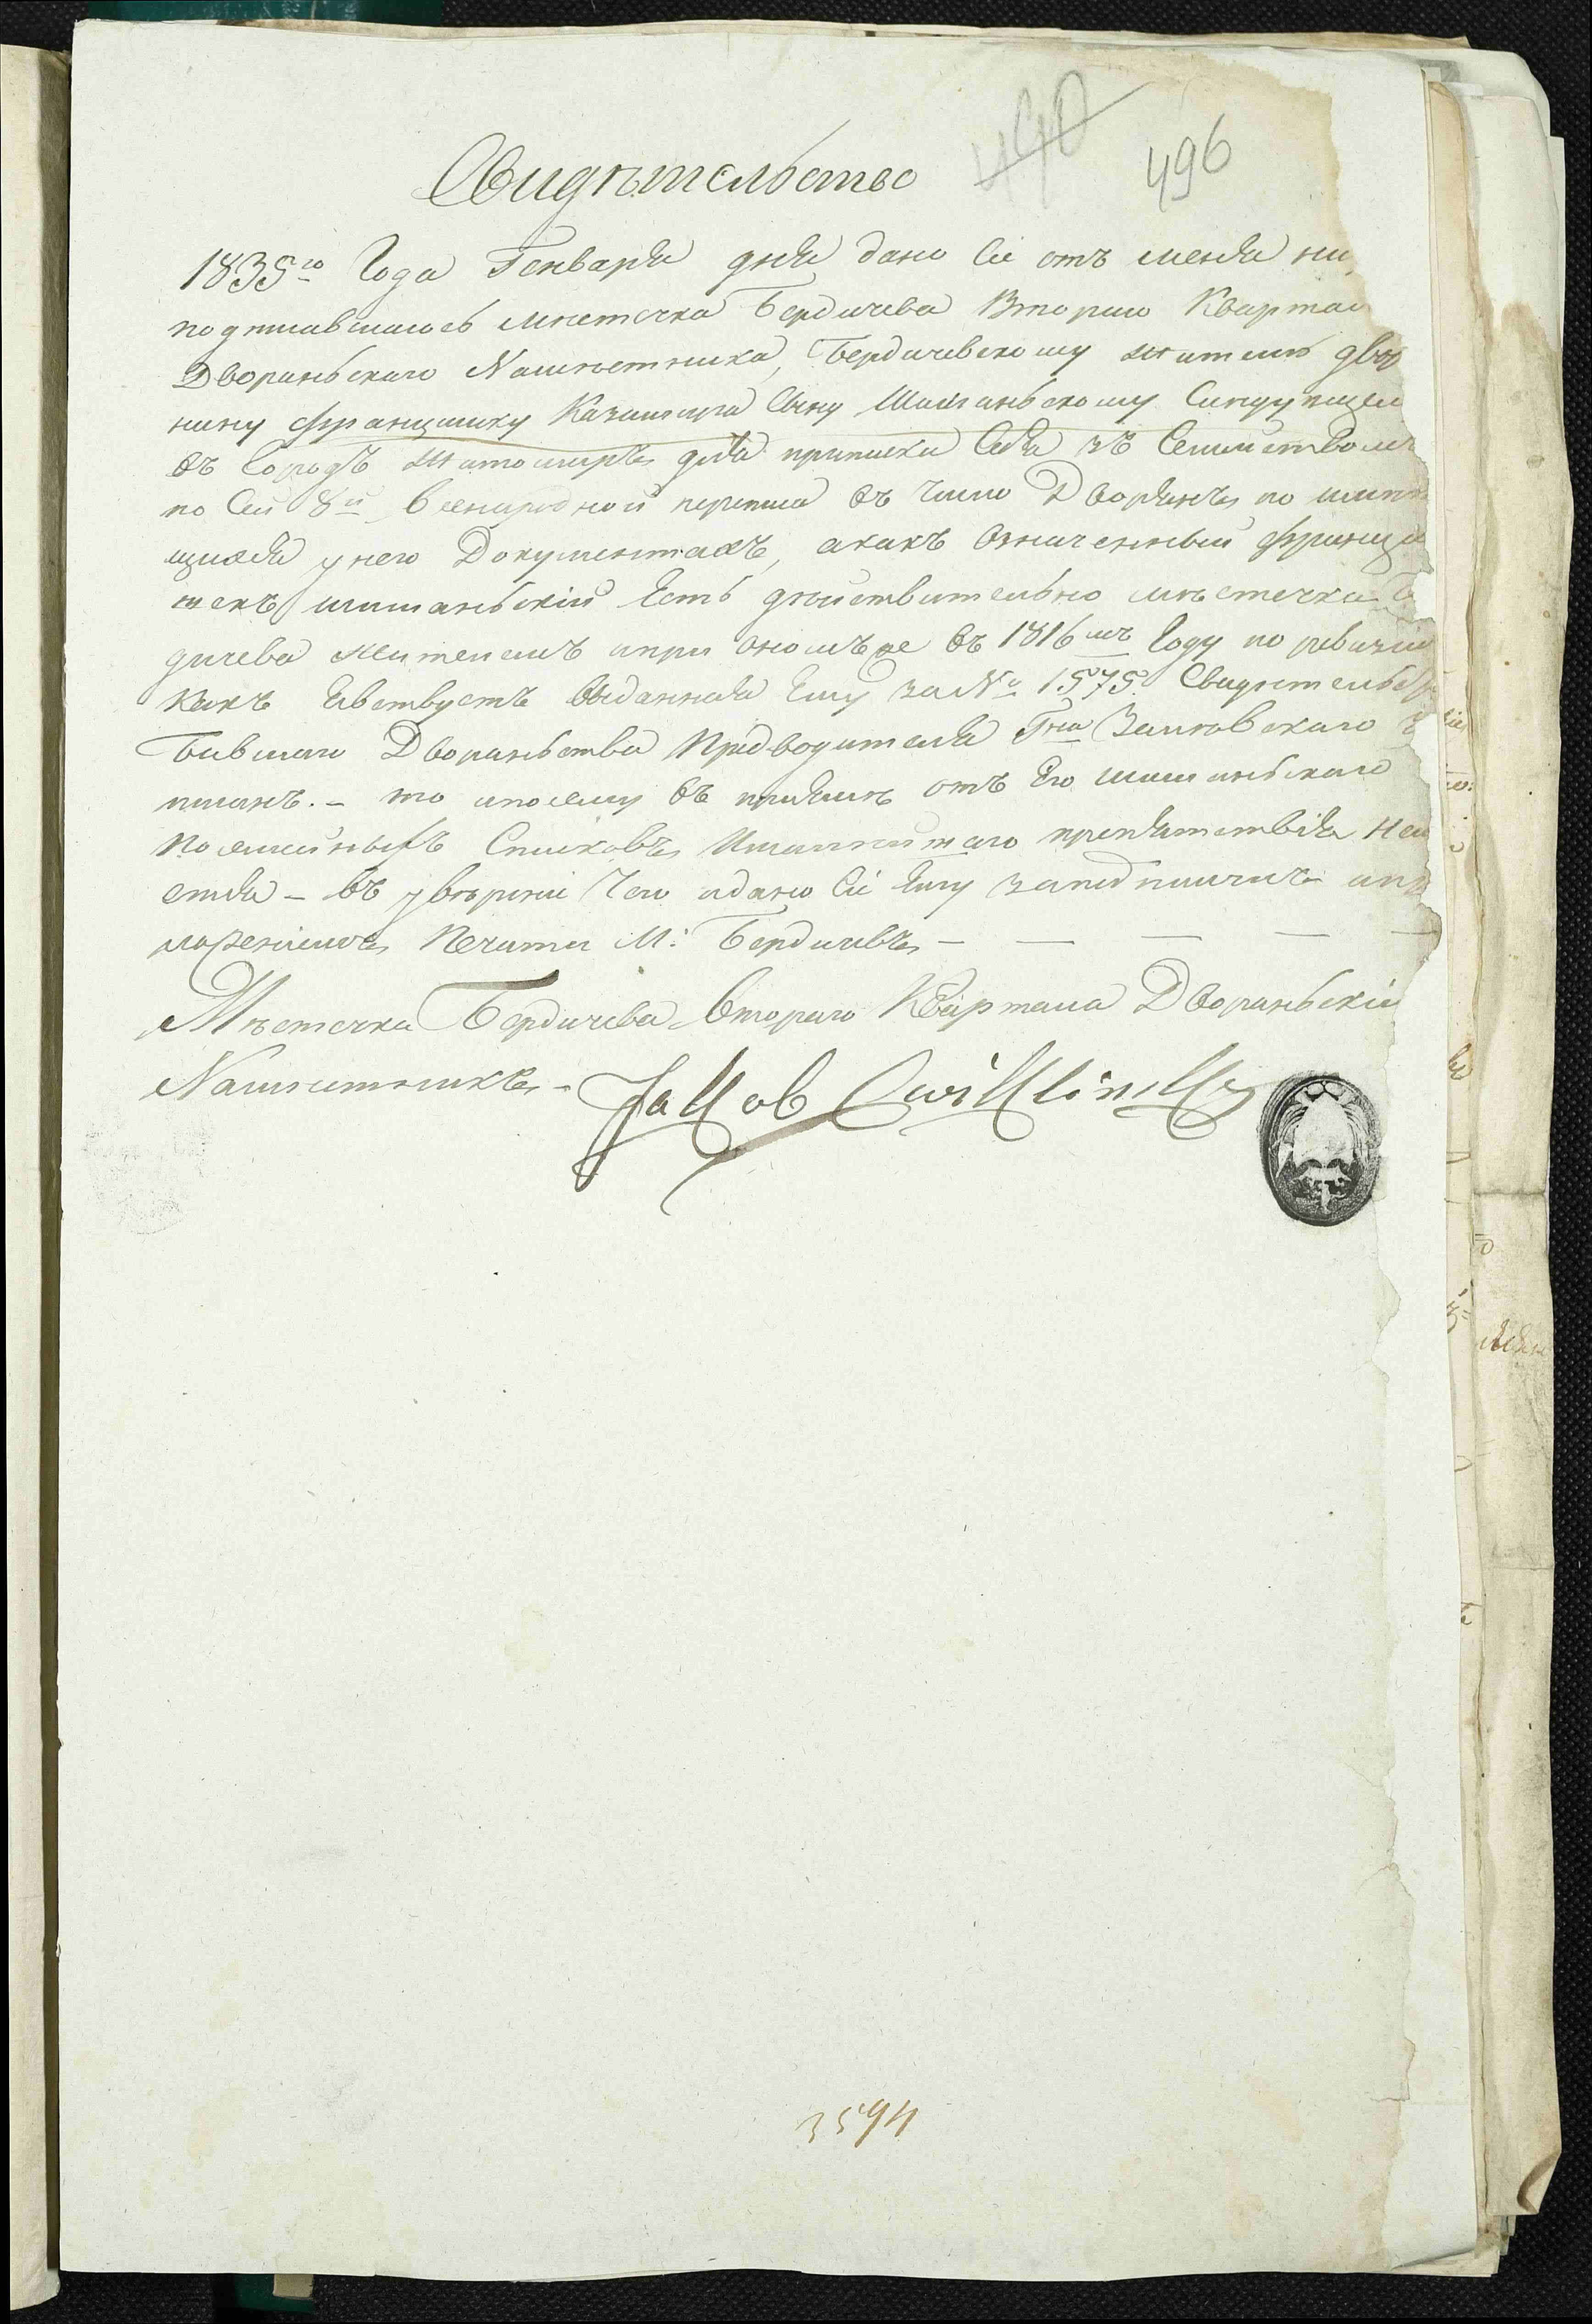 440 496
Свидѣтельство
1835го Года Генваря дня дано Сіе отъ меня ни
подписавшагось Мѣстечка Бердичева Втораго Квартал
Дворянскаго Намѣстника, Бердичевскому жителю двор
нину Францишку Казимира Сыну Шиманьскому Слѣдующем
въ Городъ Житомиръ для приписки Себя зъ Семействомъ
по Сей 8й всенародной переписи въ Число Дворянъ по имѣю
щимся унего Документахъ, акакъ Означенный Францы
шекъ Шиманьскій Есть дѣйствительно мѣстечка Б
дичева жителемъ ипри ономъ же въ 1816мъ Году по ревизіи
какъ Евствуетъ выданная Ему за № 1575 Свидѣтельс
Бывшаго Дворянства Предводителя Гна Залговскаго
писанъ. — то ипосему въ пріемѣ отъ Его Шиманьскаго
Посемейныхъ Списковъ Ималѣйшаго препятствія Неи
етъя — въ увѣреніи Чего идано Сіе Ему заподписомъ ипр
ложеніемъ Печати М: Бердичевъ — — — — —
Мѣстечка Бердичева Втораго Квартала Дворянскій
Намѣстникъ —
3594